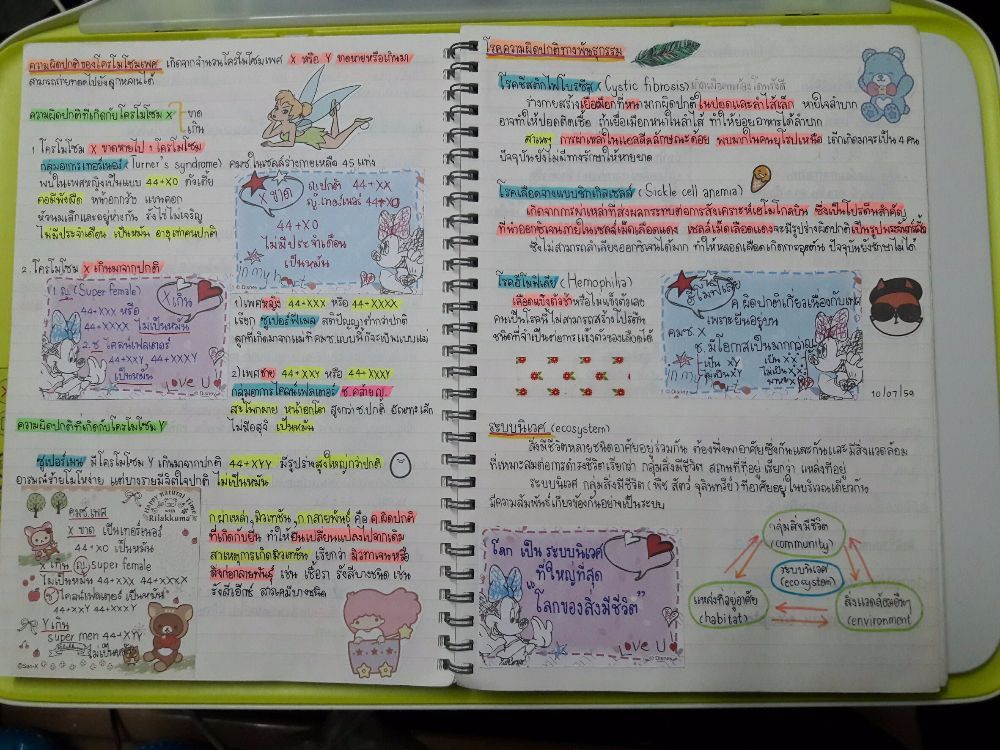 ความผิดปกติของโครโมโซมเพศ เกิดจากจำนวนโครโมโซมเพศ X หรือ Y ขาดหายหรือเกินมา
สามารถถ่ายทอดไปยังลูกหลานได้
ความผิดปกติที่เกิดกับโครโมโซม X ขาด
เกิน
1. โครโมโซม X ขาดหายไป 1 โครโมโซม
กลุ่มอาการเทอร์เนอร์ (Turner's syndrome) คมซ.ในเซลล์ร่างกายเหลือ 45 แท่ง
พบในเพศหญิงเป็นแบบ 44+XO ตัวเตี้ย
คอมีพังผืด หน้าอกกว้าง แขนคอก
หัวนมเล็กและอยู่ห่างกัน รังไข่ไม่เจริญ
ไม่มีประจำเดือน เป็นหมัน อายุเท่าคนปกติ
X ขาด
ญ.ปกติ 44+XX
ญ.เทอร์เนอร์ 44+XO
44+XO
ไม่มีประจำเดือน
เป็นหมัน
2. โครโมโซม X เกินมาจากปกติ
1. ญ (Super female)
44+XXX หรือ
44+XXXX ไม่เป็นหมัน
2. ช ไคลน์เฟลเตอร์
44+XXY 44+XXXY
เป็นหมัน
X เกิน
Love U
1) เพศหญิง 44+XXX หรือ 44+XXXX
เรียก ซูเปอร์ฟีเมล สติปัญญาต่ำกว่าปกติ
ลูกที่เกิดมาจากแม่ที่คมซ.แบบนี้ก็จะเป็นแบบแม่
2) เพศชาย 44+XXY หรือ 44+XXXY
กลุ่มอาการไคลน์เฟลเตอร์ ช.คล้ายญ.
สะโพกผาย หน้าอกโต สูงกว่าช.ปกติ อัณฑะเล็ก
ไม่มีอสุจิ เป็นหมัน
ความผิดปกติที่เกิดกับโครโมโซม Y
ซูเปอร์เมน มีโครโมโซม Y เกินมาจากปกติ 44+XYY มีรูปร่างสูงใหญ่กว่าปกติ
อารมณ์ร้ายโมโหง่าย แต่บางรายมีจิตใจปกติ ไม่เป็นหมัน
Happy natural time
with
Rilakkuma
คมซ.เพศ
X ขาด เป็นเทอร์เนอร์
44+XO เป็นหมัน
X เกิน ญ super female
ไม่เป็นหมัน 44+XXX 44+XXXX
ช ไคลน์เฟลเตอร์ เป็นหมัน
44+XXY 44+XXXY
Y เกิน
super men 44+XYY
ไม่เป็นหมัน
©San-X
ก.ผ่าเหล่า, มิวเทชัน, ก.กลายพันธุ์ คือ ค.ผิดปกติ
ที่เกิดกับยีน ทำให้ยีนเปลี่ยนแปลงไปจากเดิม
สาเหตุการเกิดมิวเทชัน เรียกว่า มิวทาเจนหรือ
สิ่งก่อกลายพันธุ์ เช่น เชื้อรา รังสีบางชนิด เช่น
รังสีเอ็กซ์ สารเคมีบางชนิด
โรคความผิดปกติทางพันธุกรรม
โรคซีสติกไฟโบรซีส (Cystic fibrosis)
ร่างกายสร้างเยื่อเมือกที่หนามากผิดปกติในปอดและลำไส้เล็ก หายใจลำบาก
อาจทำให้ปอดติดเชื้อ ถ้าเยื่อเมือกหนาในลำไส้ ทำให้ย่อยอาหารได้ลำบาก
สาเหตุ การผ่าเหล่าในแอลลีลลักษณะด้อย พบมากในคนยุโรปเหนือ เด็กเกิดมาจะเป็น 4 คน
ปัจจุบันยังไม่มีทางรักษาให้หายขาด
โรคเลือดจางแบบซิกเกิลเซลล์ (Sickle cell anemia)
เกิดจากการผ่าเหล่าที่ส่งผลกระทบต่อการสังเคราะห์เฮโมโกลบิน ซึ่งเป็นโปรตีนสำคัญ
ที่นำออกซิเจนภายในเซลล์เม็ดเลือดแดง เซลล์เม็ดเลือดแดงจะมีรูปร่างผิดปกติเป็นรูป
ซึ่งไม่สามารถลำเลียงออกซิเจนได้มาก ทำให้หลอดเลือดเกิดการอุดตัน ปัจจุบันยังรักษาไม่ได้
โรคฮีโมฟีเลีย (Hemophilia)
เลือดแข็งตัวช้าหรือไม่แข็งตัวเลย
คนเป็นโรคนี้ไม่สามารถสร้างโปรตีน
ชนิดที่จำเป็นต่อการแข็งตัวของเลือดได้
ฮีโมฟีเลีย
ค.ผิดปกติเกี่ยวเนื่องกับเพศ
เพราะยีนอยู่บน
คมซ. X
ช. มีโอกาสเป็นมากกว่าญ
10/07/59
ระบบนิเวศ (ecosystem)
สิ่งมีชีวิตหลายชนิดอาศัยอยู่ร่วมกัน ต้องพึ่งพาอาศัยซึ่งกันและกันและมีสิ่งแวดล้อม
ที่เหมาะสมต่อการดำรงชีวิตเรียกว่า กลุ่มสิ่งมีชีวิต สถานที่ที่อยู่ เรียกว่า แหล่งที่อยู่
ระบบนิเวศ กลุ่มสิ่งมีชีวิต (พืช สัตว์ จุลินทรีย์) ที่อาศัยอยู่ในบริเวณเดียวกัน
มีความสัมพันธ์เกี่ยวข้องกันอย่างเป็นระบบ
โลก เป็น ระบบนิเวศ
"ที่ใหญ่ที่สุด
"โลกของสิ่งมีชีวิต"
Love U
กลุ่มสิ่งมีชีวิต
(community)
ระบบนิเวศ
(ecosystem)
แหล่งที่อยู่อาศัย
(habitat)
สิ่งแวดล้อมอื่นๆ
(environment